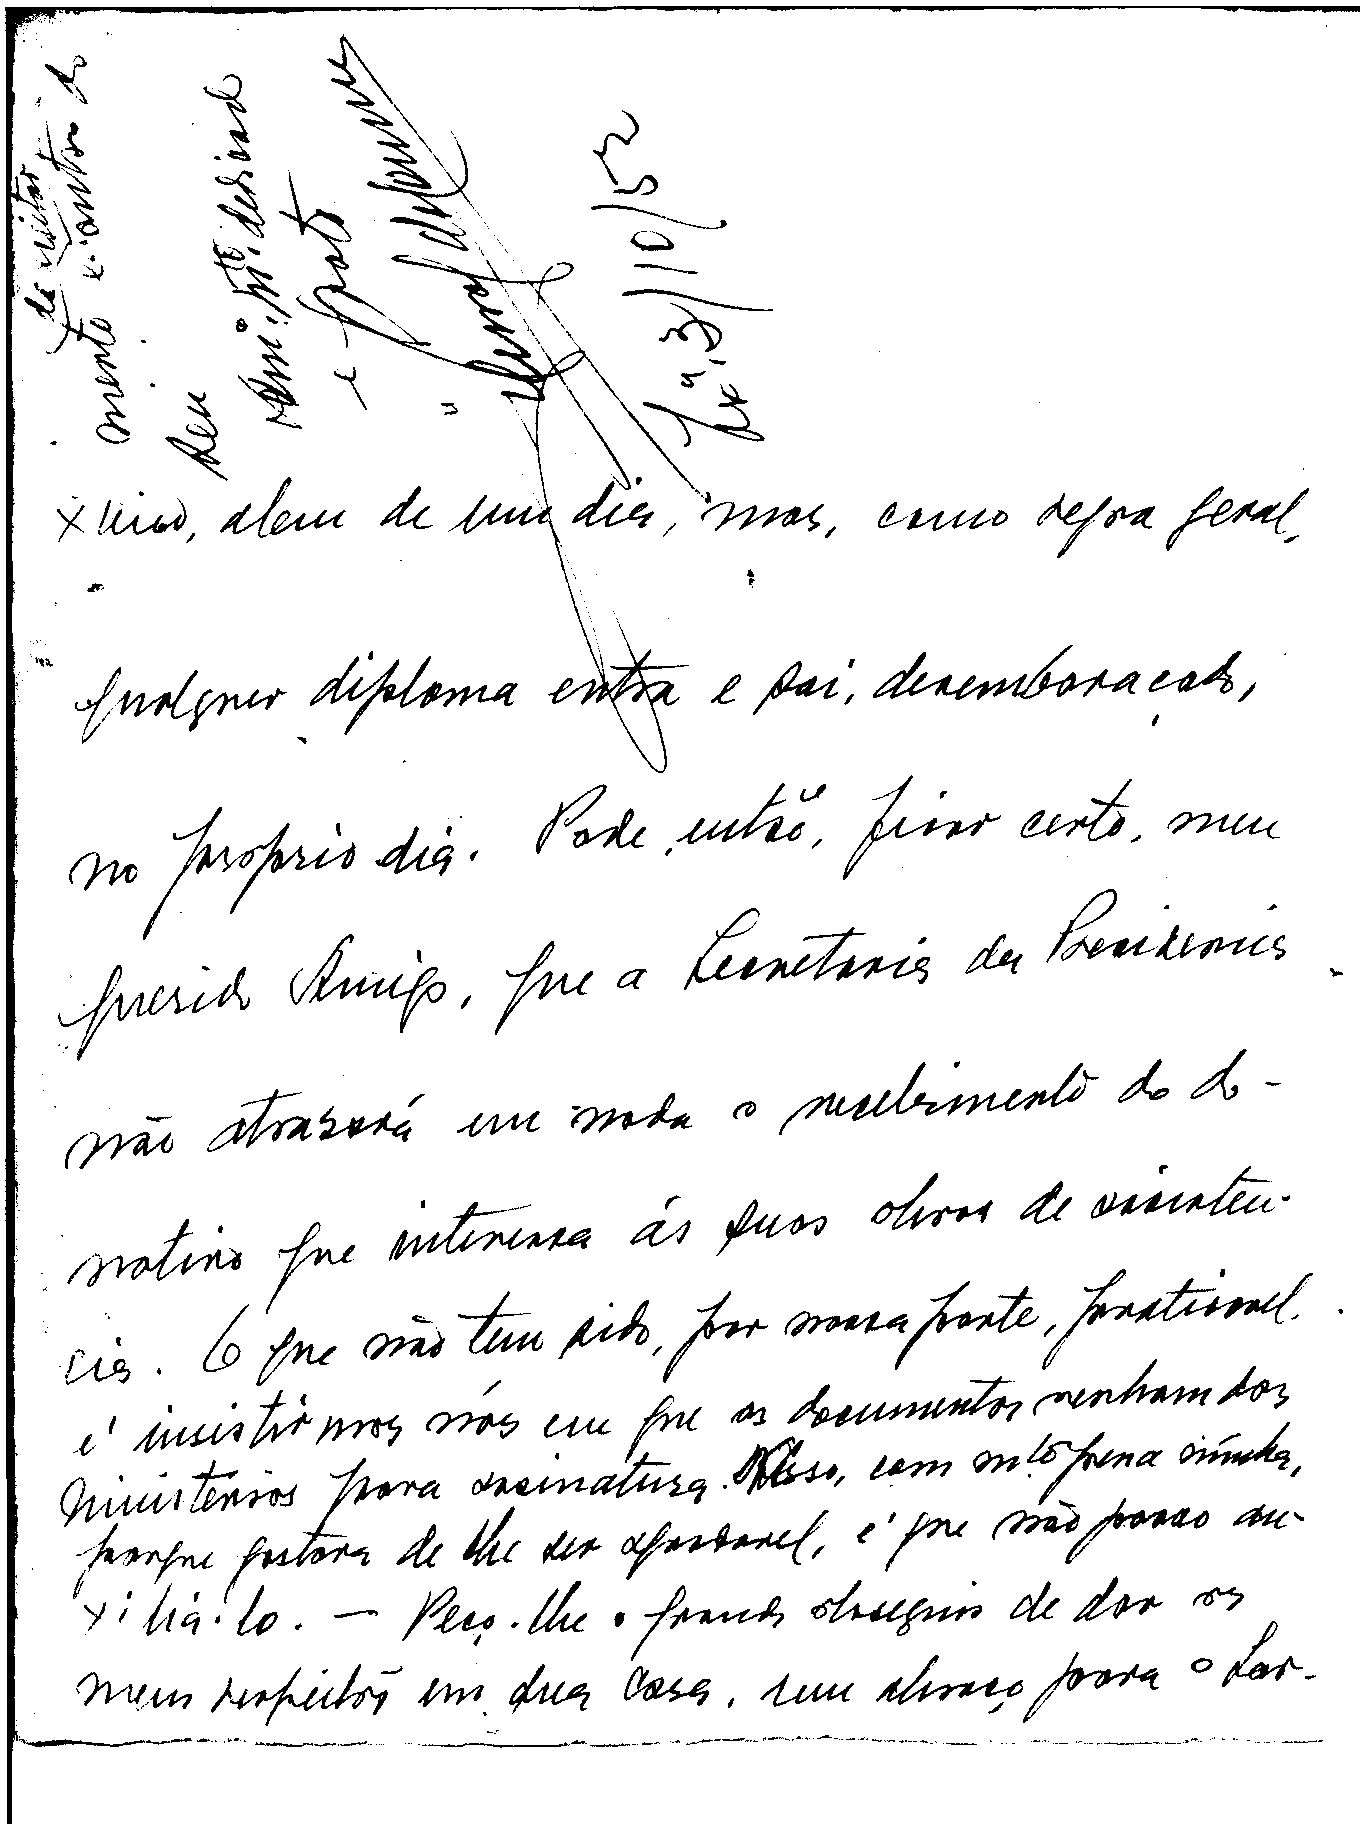 ximo, alem de um dia, mas, como regra geral,
qualquer diploma entra e sai, desembaraçado,
no proprio dia. Pode, então, ficar certo, meu
querido Amigo, que a Secretaria da Presidencia
não atrasará em nada o recebimento do do-
nativo que interessa ás suas obras de assisten-
cia. O que não tem sido, por nossa parte, praticavel,
é insistirmos nós em que os documentos venham dos
Ministérios para assinatura. Nisso, com mtº pena minha,
porque gostava de lhe ser agradavel, é que não posso au-
xiliá-lo. — Peço-lhe o grande obsequio de dar os
meus respeitos em sua casa, um abraço para o Sar-
mento e outro do
seu
am.º mtº dedicado
e grato
Lxª, 3/10/52